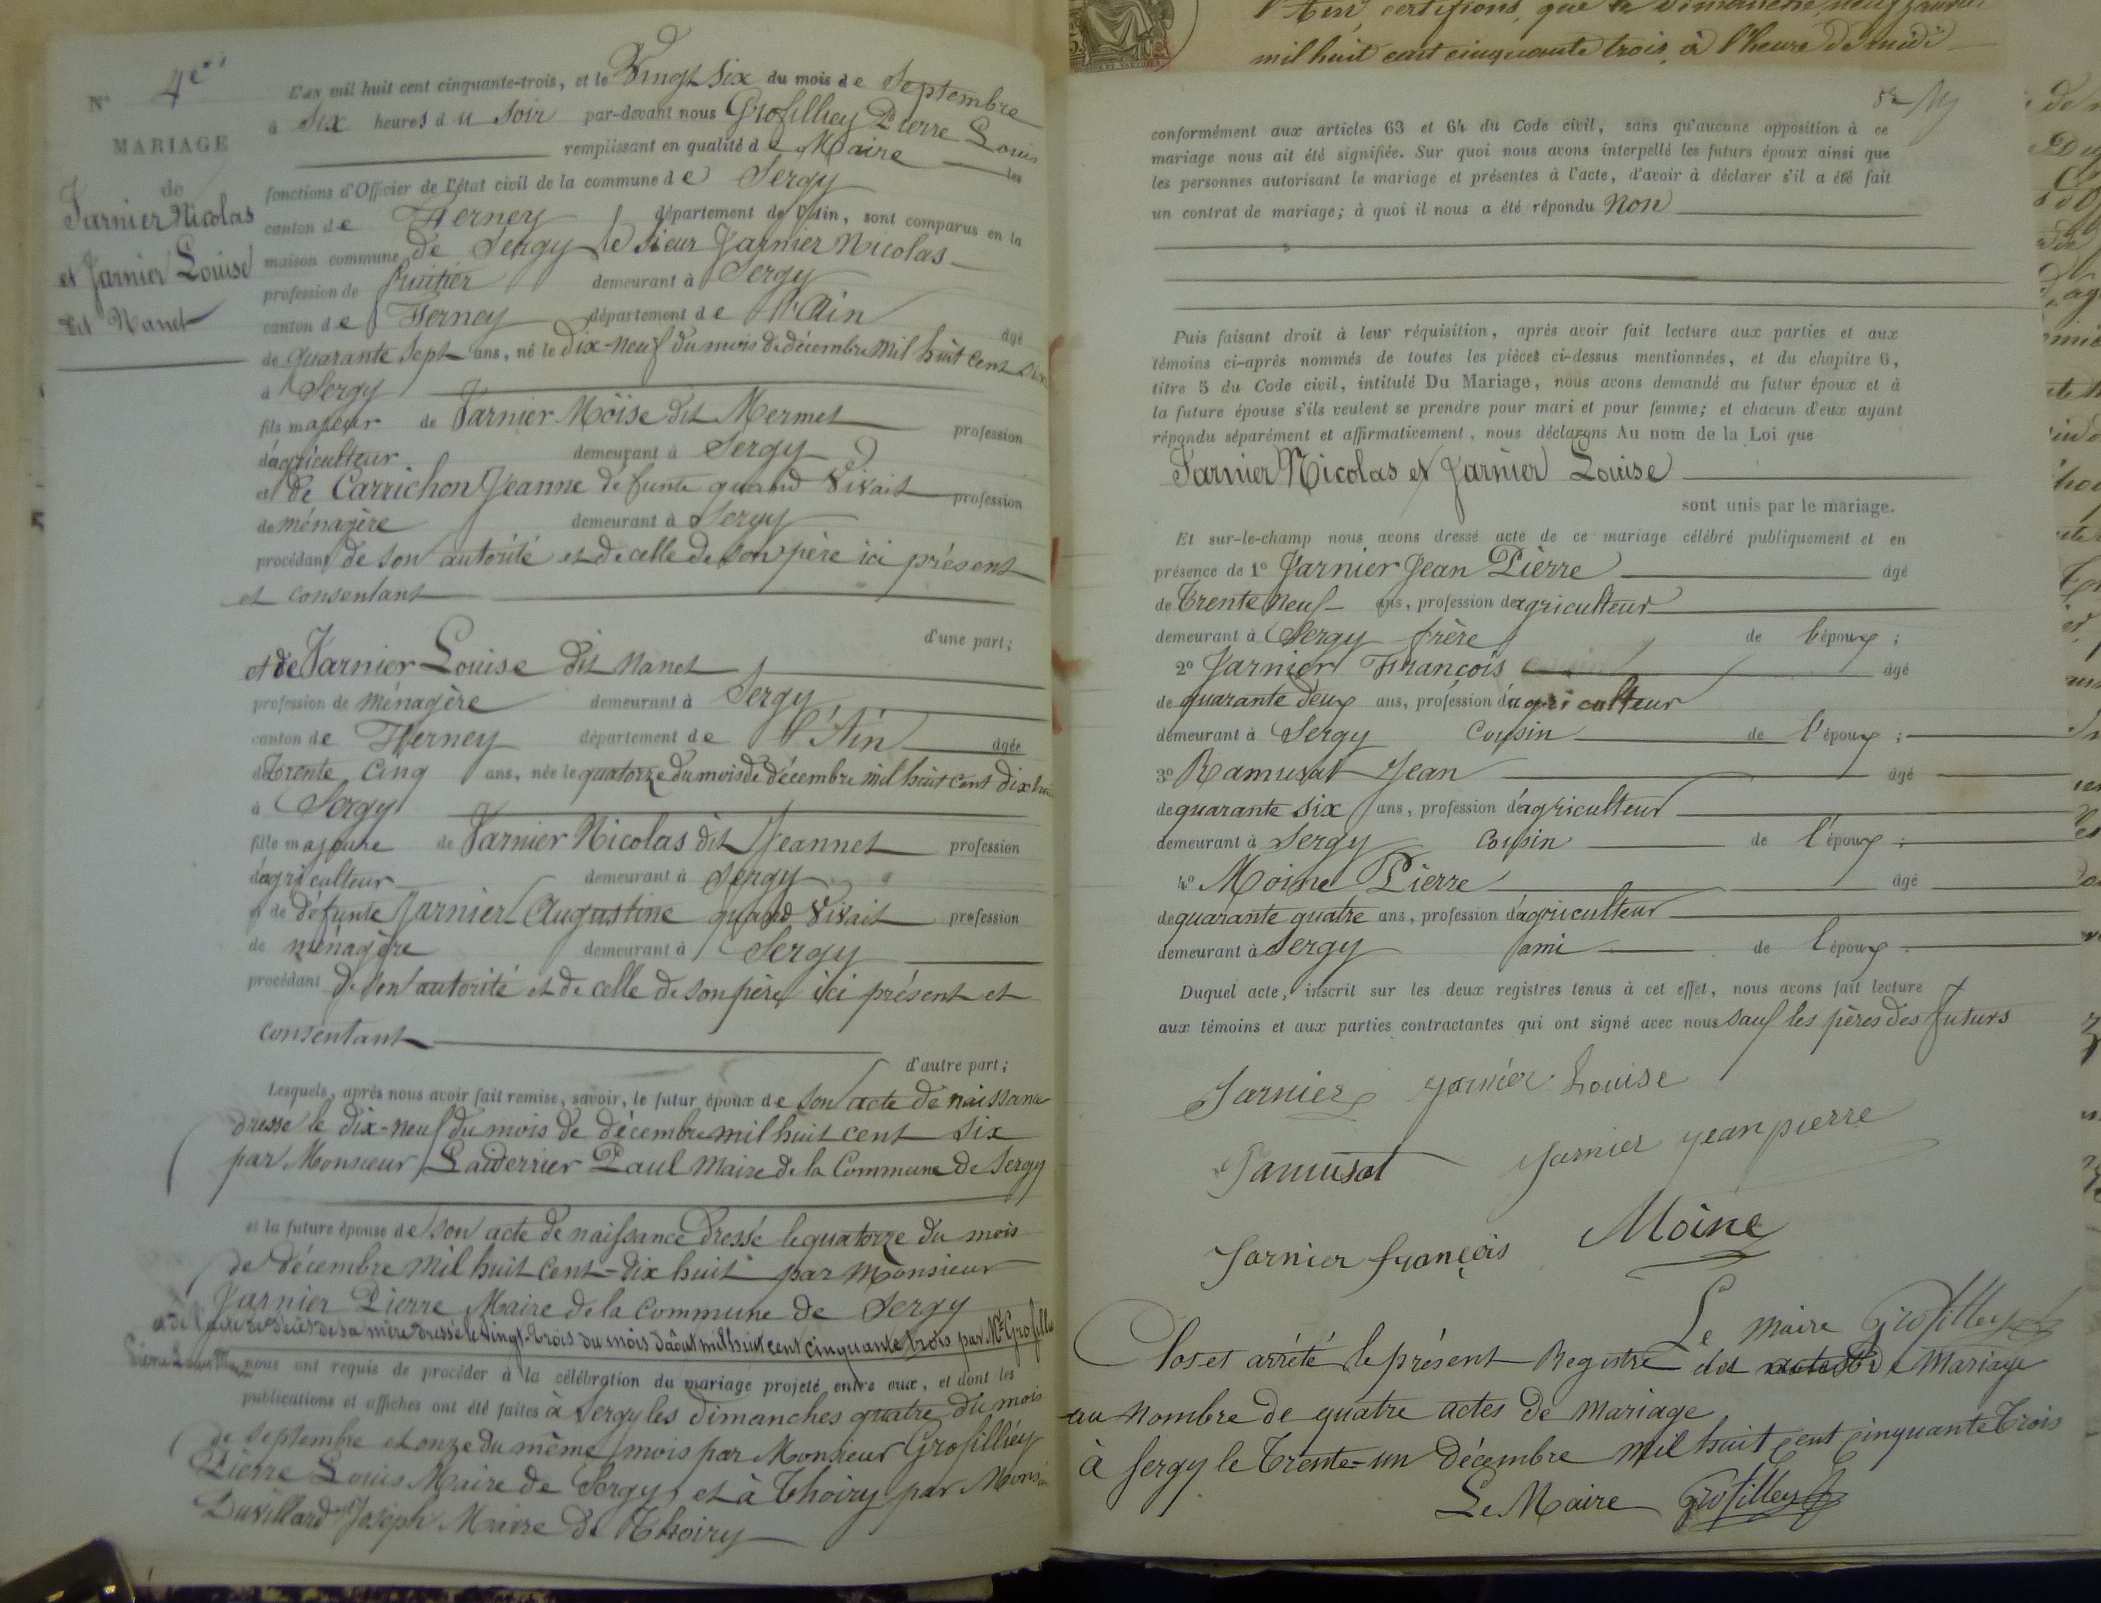 N° 4e
MARIAGE
de
Jarnier Nicolas
et Jarnier Louise
dit Nanet
L'an mil huit cent cinquante-trois, et le Vingt six du mois de Septembre
à six heures du soir par-devant nous Grosfilley Pierre Louis
remplissant en qualité de Maire les
fonctions d'Officier de l'état civil de la commune de Sergy
canton de Ferney département de l'Ain, sont comparus en la
maison commune de Sergy le sieur Jarnier Nicolas
profession de fruitier demeurant à Sergy
canton de Ferney département de l'Ain âgé
de quarante sept ans, né le dix-neuf du mois de décembre mil huit cent six
à Sergy
fils majeur de Jarnier Moïse dit Mermet profession
d'agriculteur demeurant à Sergy
et de Carrichon Jeanne défunte quand vivait profession
de ménagère demeurant à Sergy
procédant de son autorité et de celle de son père ici présent
et consentant
d'une part;
et de Jarnier Louise dit Nanet
profession de ménagère demeurant à Sergy
canton de Ferney département de l'Ain âgée
de trente cinq ans, née le quatorze du mois de décembre mil huit cent dix huit
à Sergy
fille majeure de Jarnier Nicolas dit Jeannet profession
d'agriculteur demeurant à Sergy
et de défunte Jarnier Augustine quand vivait profession
de ménagère demeurant à Sergy
procédant de son autorité et de celle de son père ici présent et
consentant
d'autre part;
Lesquels, après nous avoir fait remise, savoir, le futur époux de son acte de naissance
dressé le dix-neuf du mois de décembre mil huit cent six
par Monsieur Laverrier Paul Maire de la Commune de Sergy
et la future épouse de son acte de naissance dressé le quatorze du mois
de décembre mil huit cent dix huit par Monsieur
Jarnier Pierre Maire de la commune de Sergy
et de l'acte de décès de sa mère dressé le vingt-trois du mois d'août mil huit cent cinquante trois par Mr Grosfilley
Pierre Louis Maire nous ont requis de procéder à la célébration du mariage projeté entre eux, et dont les
publications et affiches ont été faites à Sergy les dimanches quatre du mois
de septembre et onze du même mois par Monsieur Grosfilley
Pierre Louis Maire de Sergy, et à Thoiry par Monsieur
Duvillard Joseph Maire de Thoiry
l'Ain, certifions que le Dimanche neuf janvier
mil huit cent cinquante trois, à l'heure de midi
conformément aux articles 63 et 64 du Code civil, sans qu'aucune opposition à ce
mariage nous ait été signifiée. Sur quoi nous avons interpellé les futurs époux ainsi que
les personnes autorisant le mariage et présentes à l'acte, d'avoir à déclarer s'il a été fait
un contrat de mariage; à quoi il nous a été répondu Non
Puis faisant droit à leur réquisition, après avoir fait lecture aux parties et aux
témoins ci-après nommés de toutes les pièces ci-dessus mentionnées, et du chapitre 6,
titre 5 du Code civil, intitulé Du Mariage, nous avons demandé au futur époux et à
la future épouse s'ils veulent se prendre pour mari et pour femme; et chacun d'eux ayant
répondu séparément et affirmativement, nous déclarons Au nom de la Loi que
Jarnier Nicolas et Jarnier Louise
sont unis par le mariage.
Et sur-le-champ nous avons dressé acte de ce mariage célébré publiquement et en
présence de 1° Jarnier Jean Pierre âgé
de trente neuf ans, profession d'agriculteur
demeurant à Sergy frère de l'époux;
2° Jarnier François âgé
de quarante deux ans, profession d'agriculteur
demeurant à Sergy cousin de l'époux;
3° Ramusat Jean âgé
de quarante six ans, profession d'agriculteur
demeurant à Sergy cousin de l'époux;
4° Moine Pierre âgé
de quarante quatre ans, profession d'agriculteur
demeurant à Sergy ami de l'époux.
Duquel acte, inscrit sur les deux registres tenus à cet effet, nous avons fait lecture
aux témoins et aux parties contractantes qui ont signé avec nous sauf les pères des futurs
Jarnier Jarnier Louise
Ramusat Jarnier jean pierre
Jarnier françois Moine
Le maire Grosfilley
Clos et arrêté le présent Registre de Mariage
au nombre de quatre actes de mariage
à Sergy le trente-un décembre mil huit cent cinquante trois
Le Maire Grosfilley